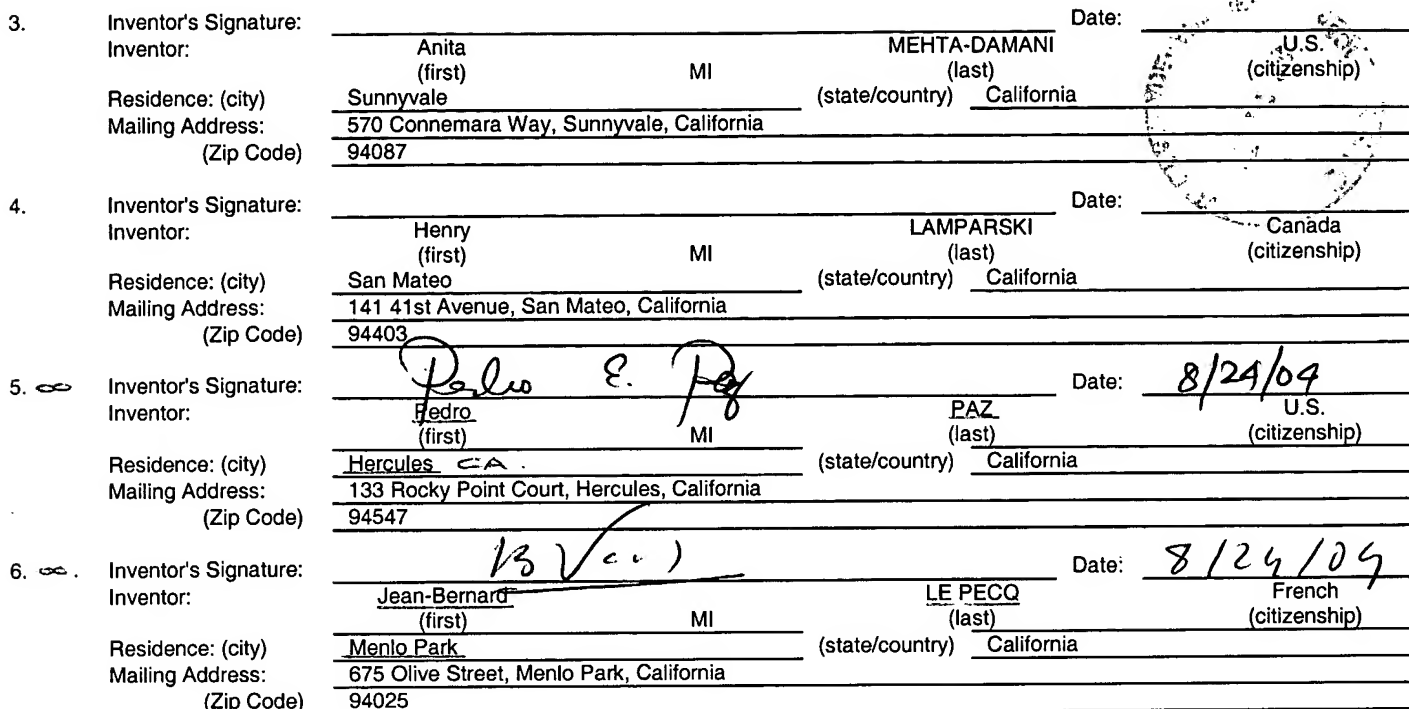 3. Inventor's Signature: Date:
Inventor: Anita MEHTA-DAMANI U.S.
(first) MI (last) (citizenship)
Residence: (city) Sunnyvale (state/country) California
Mailing Address: 570 Connemara Way, Sunnyvale, California
(Zip Code) 94087
4. Inventor's Signature: Date:
Inventor: Henry LAMPARSKI Canada
(first) MI (last) (citizenship)
Residence: (city) San Mateo (state/country) California
Mailing Address: 141 41st Avenue, San Mateo, California
(Zip Code) 94403
5. Inventor's Signature: Pedro E. Paz Date: 8/24/04
Inventor: Pedro PAZ U.S.
(first) MI (last) (citizenship)
Residence: (city) Hercules CA. (state/country) California
Mailing Address: 133 Rocky Point Court, Hercules, California
(Zip Code) 94547
6. Inventor's Signature: Date: 8/24/04
Inventor: Jean-Bernard LE PECQ French
(first) MI (last) (citizenship)
Residence: (city) Menlo Park (state/country) California
Mailing Address: 675 Olive Street, Menlo Park, California
(Zip Code) 94025